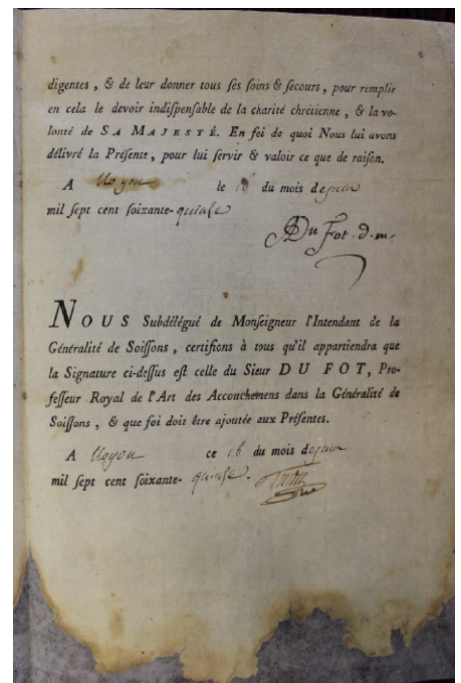 digentes, & de leur donner tous ſes ſoins & ſecours, pour remplir
en cela le devoir indiſpenſable de la charité chrétienne, & la vo-
lonté de SA MAJESTÉ. En foi de quoi Nous lui avons
délivré la Préſente, pour lui ſervir & valoir ce que de raiſon.
A Noyon le 16 du mois de juin
mil ſept cent ſoixante-quinſe
Du fot. d. m.
NOUS Subdélégué de Monſeigneur l'Intendant de la
Généralité de Soiſſons, certifions à tous qu'il appartiendra que
la Signature ci-deſſus eſt celle du Sieur DU FOT, Pro-
feſſeur Royal de l'Art des Accouchemens dans la Généralité de
Soiſſons, & que foi doit être ajoutée aux Préſentes.
A Noyon ce 16 du mois de juin
mil ſept cent ſoixante-quinſe.